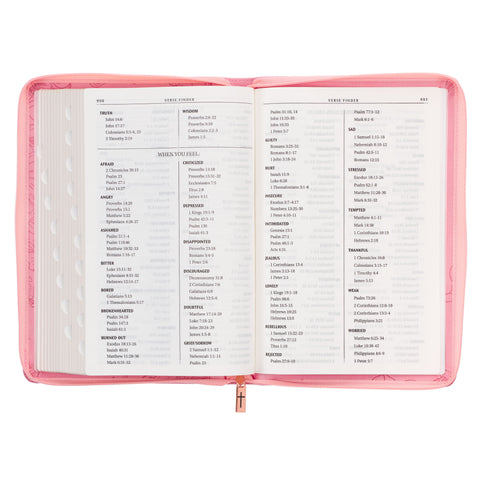 930
VERSE FINDER
TRUTH
John 14:6
John 17:17
2 Timothy 2:15
WISDOM
James 1:5
WHEN YOU FEEL:
AFRAID
2 Chronicles 20:15
Psalm 23
Psalm 27:1
John 14:27
ANGRY
Proverbs 14:29
Proverbs 15:1
Matthew 5:22
Ephesians 4:26-27
ASHAMED
Psalm 25:1-4
Psalm 119:46
Matthew 10:32-33
Romans 1:16
BITTER
Luke 15:11-32
Ephesians 4:31-32
Hebrews 12:14-15
BORED
Galatians 5:13
1 Thessalonians 5:17
BROKENHEARTED
Psalm 34:18
Psalm 147:3
Isaiah 61:1
BURNED OUT
Exodus 18:13-26
Isaiah 40:31
Matthew 11:28-30
Mark 6:31-32
CRITICIZED
Proverbs 13:18
Ecclesiastes 7:5
Titus 2:8
James 4:11
DEPRESSED
1 Kings 19:1-9
Psalm 42:5
Psalm 130
Isaiah 61:3
DISAPPOINTED
Proverbs 13:12
Romans 5:4-5
1 Peter 2:6
DISCOURAGED
Deuteronomy 31:8
2 Corinthians 7:6
Galatians 6:9
Hebrews 12:2-5
DOUBTFUL
Matthew 17:14-20
John 20:24-29
James 1:5-8
GRIEF/SORROW
2 Samuel 1:1-12
Nehemiah 1:1-4
Psalm 23
VERSE FINDER
931
John 11:33-35
John 16:20
1 Peter 5:7
GUILTY
Romans 3:21-26
Romans 8:1-17
1 John 3:18-24
HURT
Isaiah 51:9
Luke 6:28
1 Thessalonians 3:1-8
INSECURE
Exodus 3:7-4:17
Numbers 13:25-33
1 Peter 4:10-11
INTIMIDATED
Genesis 13:1
Psalm 27:1
Psalm 46:1
Acts 4:31
JEALOUS
1 Corinthians 13:4
James 3:13-18
1 Peter 2:1-3
LONELY
1 Kings 19:1-18
Psalm 68:6
Hebrews 10:25
Hebrews 13:5
REBELLIOUS
1 Samuel 15:22-23
Proverbs 17:11
Titus 1:10
REJECTED
Psalm 27:9-10
Psalm 77:1-12
Mark 9:31
SAD
1 Samuel 1:11-18
Nehemiah 8:10-12
Psalm 30:11
STRESSED
Exodus 18:13-26
Psalm 62:1-8
Matthew 11:28-30
Mark 6:31-32
TEMPTED
Matthew 4:1-11
Mark 14:38
1 Corinthians 10:13
Hebrews 2:18
THANKFUL
1 Chronicles 16:8
Colossians 3:15-17
1 Timothy 4:4
James 5:13
WEAK
Psalm 73:26
2 Corinthians 12:8-10
2 Corinthians 13:4
Philippians 3:21
WORRIED
Matthew 6:25-34
Luke 10:38-42
Philippians 4:6-9
1 Peter 5:7